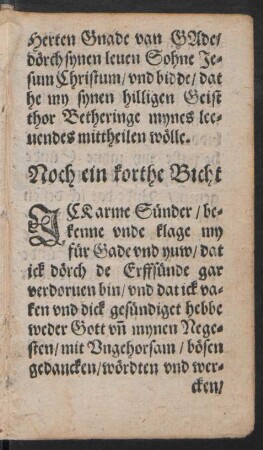 Herten Gnade van GAde/
dörch synen leuen Sohne Je-
sum Christum/ vnd bidde/ dat
he my synen hilligen Geist
thor Betheringe mynes lee-
uendes mittheilen wölle.
Noch ein korthe Bicht
JCK arme Sünder/ be-
kenne vnde klage my
für Gade vnd yuw/ dat
ick dörch de Erffsünde gar
verdoruen bin/ vnd dat ick va-
ken vnd dick gesündiget hebbe
weder Gott vñ mynen Nege-
sten/ mit Vngehorsam/ bösen
gedancken/ wördten vnd wer-
cken/